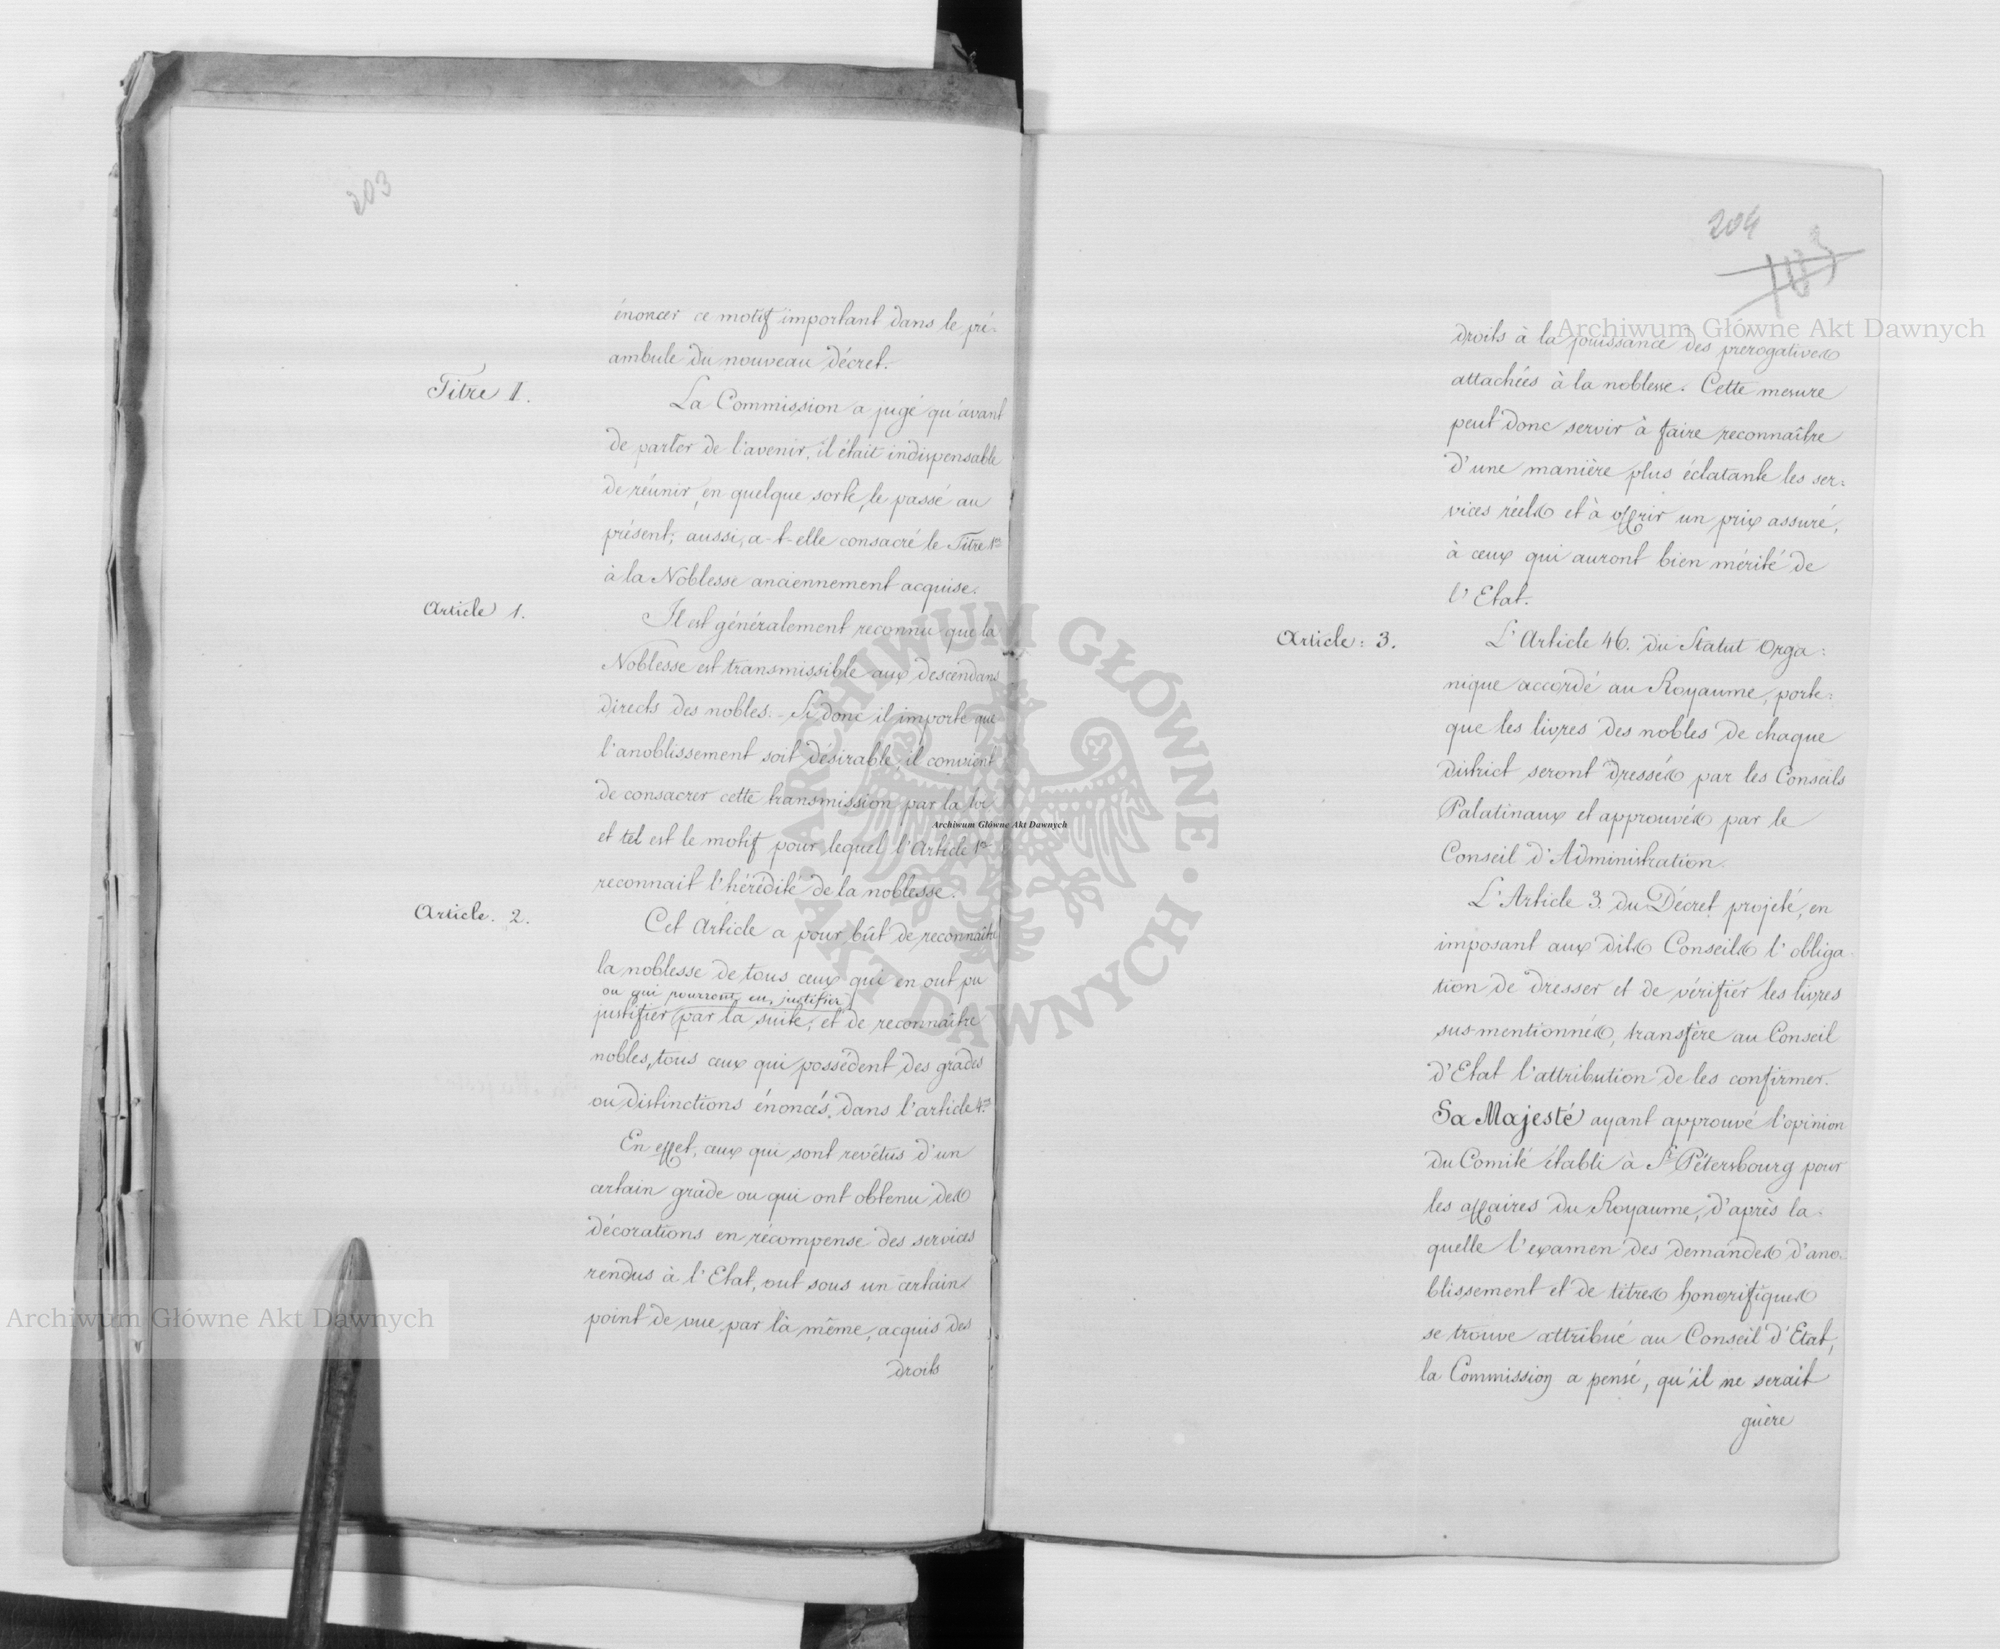 203
énoncer ce motif important dans le pré-
ambule du nouveau décret.
Titre I.
La Commission a jugé qu'avant
de parler de l'avenir, il était indispensable
de réunir, en quelque sorte, le passé au
présent; aussi, a-t-elle consacré le Titre 1er
à la Noblesse anciennement acquise.
Article 1.
Il est généralement reconnu que la
Noblesse est transmissible aux descendans
directs des nobles. - Si donc il importe que
l'anoblissement soit désirable, il convient
de consacrer cette transmission par la loi
et tel est le motif pour lequel l'Article 1er
reconnait l'hérédité de la noblesse.
Article. 2.
Cet Article a pour bût de reconnaître
la noblesse de tous ceux qui en ont pu
ou qui pourront en justifier
justifier par la suite, et de reconnaître
nobles, tous ceux qui possèdent des grades
ou distinctions énoncés dans l'article 4.
En effet, ceux qui sont revêtus d'un
certain grade ou qui ont obtenu des
décorations en récompense des services
rendus à l'Etat, ont sous un certain
point de vue, par là même, acquis des
droits
204
103
droits à la jouissance des prérogatives
attachées à la noblesse. Cette mesure
peut donc servir à faire reconnaître
d'une manière plus éclatante les ser-
vices réels et à offrir un prix assuré,
à ceux qui auront bien mérité de
l'Etat.
Article: 3.
L'Article 46. du Statut Orga:
nique accordé au Royaume, porte:
que les livres des nobles de chaque
district seront dressés par les Conseils
Palatinaux et approuvés par le
Conseil d'Administration.
L'Article 3. du Décret projeté, en
imposant aux dits Conseils l'obliga-
tion de dresser et de vérifier les livres
sus-mentionnés, transfère au Conseil
d'Etat l'attribution de les confirmer.
Sa Majesté ayant approuvé l'opinion
du Comité établi à St. Pétersbourg pour
les affaires du Royaume, d'après la-
quelle l'examen des demandes d'ano-
blissement et de titres honorifiques
se trouve attribué au Conseil d'Etat,
la Commission a pensé, qu'il ne serait
guère
Archiwum Główne Akt Dawnych
Archiwum Główne Akt Dawnych
Archiwum Główne Akt Dawnych
ARCHIWUM GŁÓWNE · AKT DAWNYCH ·